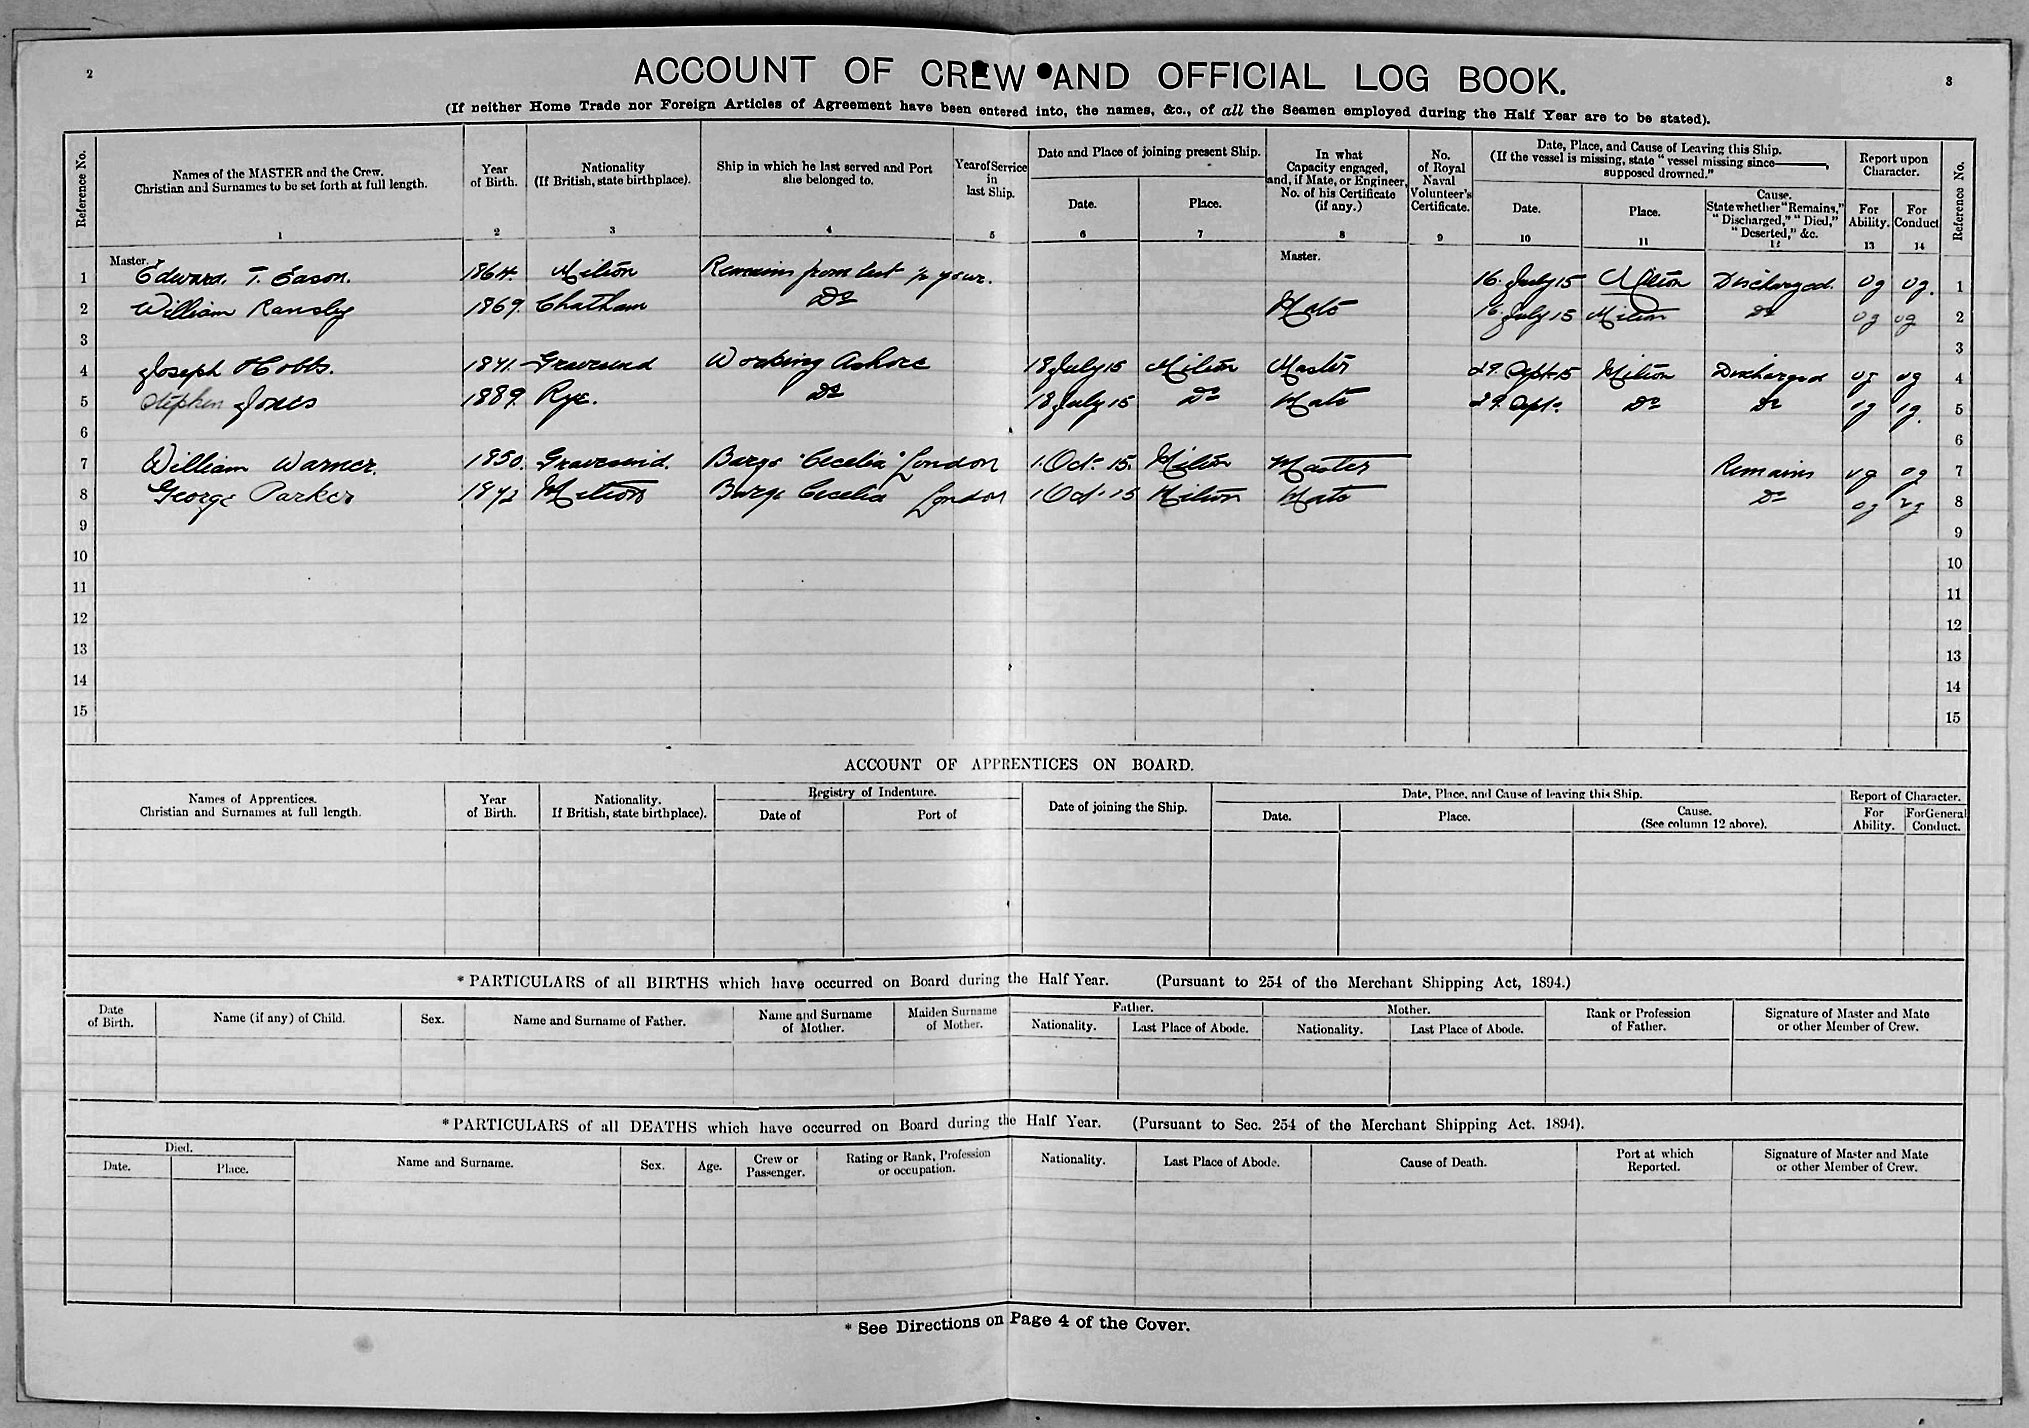 2
3
ACCOUNT OF CREW AND OFFICIAL LOG BOOK.
(If neither Home Trade nor Foreign Articles of Agreement have been entered into, the names, &c., of all the Seamen employed during the Half Year are to be stated).
Reference No.
Names of the MASTER and the Crew.
Christian and Surnames to be set forth at full length.
1
Year
of Birth.
2
Nationality
(If British, state birthplace).
3
Ship in which he last served and Port
she belonged to.
4
Year of Service
in
last Ship.
5
Date and Place of joining present Ship.
Date.
6
Place.
7
In what
Capacity engaged,
and, if Mate, or Engineer,
No. of his Certificate
(if any.)
8
No.
of Royal
Naval
Volunteer's
Certificate.
9
Date, Place, and Cause of Leaving this Ship.
(If the vessel is missing, state "vessel missing since———,
supposed drowned."
Date.
10
Place.
11
Cause.
State whether "Remains,"
"Discharged," "Died,"
"Deserted," &c.
12
Report upon
Character.
For
Ability.
13
For
Conduct
14
Reference No.
Master.
Master.
1 Edward T. Eason. 1864. Milton Remains from last ½ year. 16. July 15 Milton Discharged. v g v g. 1
2 William Ransley 1869. Chatham Do Mate 16. July 15 Milton Do v g v g 2
3 3
4 Joseph Hobbs. 1841. Gravesend Working Ashore 18 July 15 Milton Master 29. Sept 15 Milton Discharged v g v g 4
5 Stephen Jones 1889 Rye. Do 18 July 15 Do Mate 29. Sept. Do Do v g v g. 5
6 6
7 William Warner. 1850. Gravesend. Barge "Cecelia" London 1. Oct 15. Milton Master Remains v g v g 7
8 George Parker Milton Barge Cecelia London 1 Oct. 15 Milton Mate Do v g v g 8
9 9
10 10
11 11
12 12
13 13
14 14
15 15
ACCOUNT OF APPRENTICES ON BOARD.
Names of Apprentices.
Christian and Surnames at full length.
Year
of Birth.
Nationality.
If British, state birthplace).
Registry of Indenture.
Date of
Port of
Date of joining the Ship.
Date, Place, and Cause of leaving this Ship.
Date.
Place.
Cause.
(See column 12 above).
Report of Character.
For
Ability.
For General
Conduct.
* PARTICULARS of all BIRTHS which have occurred on Board during the Half Year. (Pursuant to 254 of the Merchant Shipping Act, 1894.)
Date
of Birth.
Name (if any) of Child.
Sex.
Name and Surname of Father.
Name and Surname
of Mother.
Maiden Surname
of Mother.
Father.
Nationality.
Last Place of Abode.
Mother.
Nationality.
Last Place of Abode.
Rank or Profession
of Father.
Signature of Master and Mate
or other Member of Crew.
* PARTICULARS of all DEATHS which have occurred on Board during the Half Year. (Pursuant to Sec. 254 of the Merchant Shipping Act. 1894).
Died.
Date.
Place.
Name and Surname.
Sex.
Age.
Crew or
Passenger.
Rating or Rank, Profession
or occupation.
Nationality.
Last Place of Abode.
Cause of Death.
Port at which
Reported.
Signature of Master and Mate
or other Member of Crew.
* See Directions on Page 4 of the Cover.